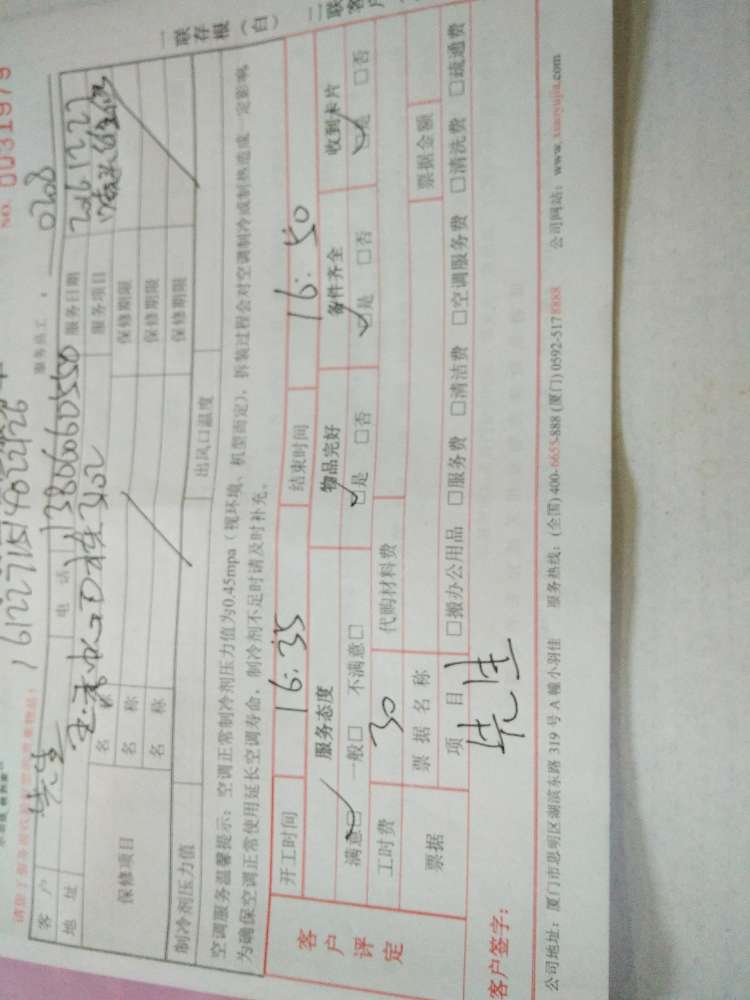 NO. 0031979
161227151402226
服务员工: 0208
客户 先生 电话 13806060550 服务日期 20161222
地址 3102 服务项目
保修项目 名称 保修期限
名称 保修期限
名称 保修期限
制冷剂压力值 出风口温度
空调服务温馨提示: 空调正常制冷剂压力值为0.45mpa (视环境、机型而定), 拆装过程会对空调制冷或制热造成一定影响,
为确保空调正常使用延长空调寿命, 制冷剂不足时请及时补充。
一联存根(白)
客户评定
开工时间 16:35 结束时间 16:50
服务态度 物品完好 备件齐全 收到卡片
满意□ 一般□ 不满意□ □是 □否 □是 □否 □是 □否
工时费 30 代购材料费
票据 票据名称 票据金额
项目 □搬办公用品 □服务费 □清洁费 □空调服务费 □清洗费 □疏通费
客户签字: 先生
公司地址: 厦门市思明区湖滨东路 319 号 A 幢小羽佳 服务热线: (全国) 400-6655-888 (厦门) 0592-5178888 公司网站: www.xiaoyujia.com